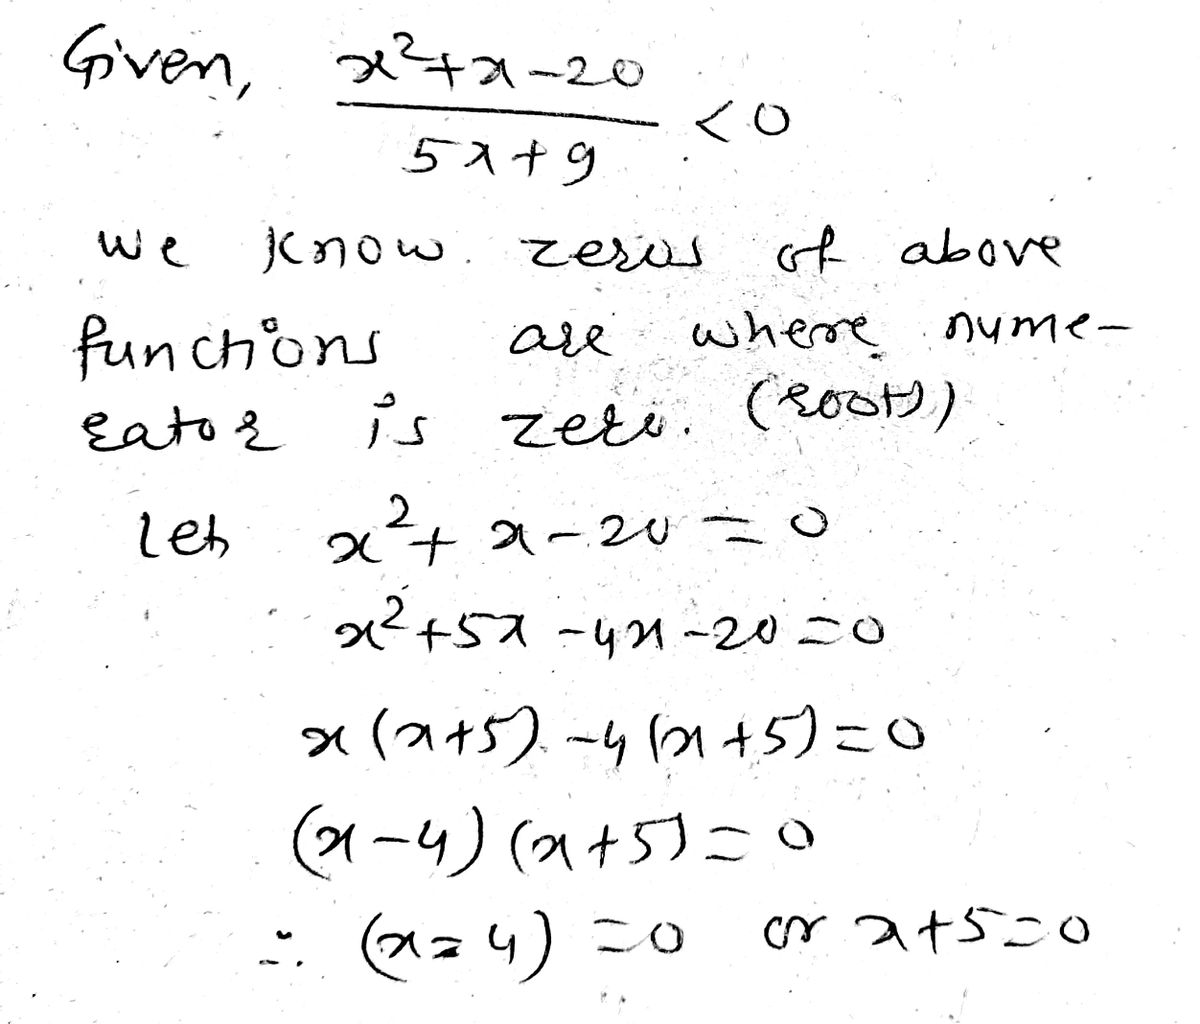 Given, x²+x-20 / 5x+9 <0
we know zeros of above
functions are where nume-
rator is zero. (roots)
let x²+x-20=0
x²+5x-4x-20=0
x(x+5)-4(x+5)=0
(x-4)(x+5)=0
∴ (x=4)=0 or x+5=0